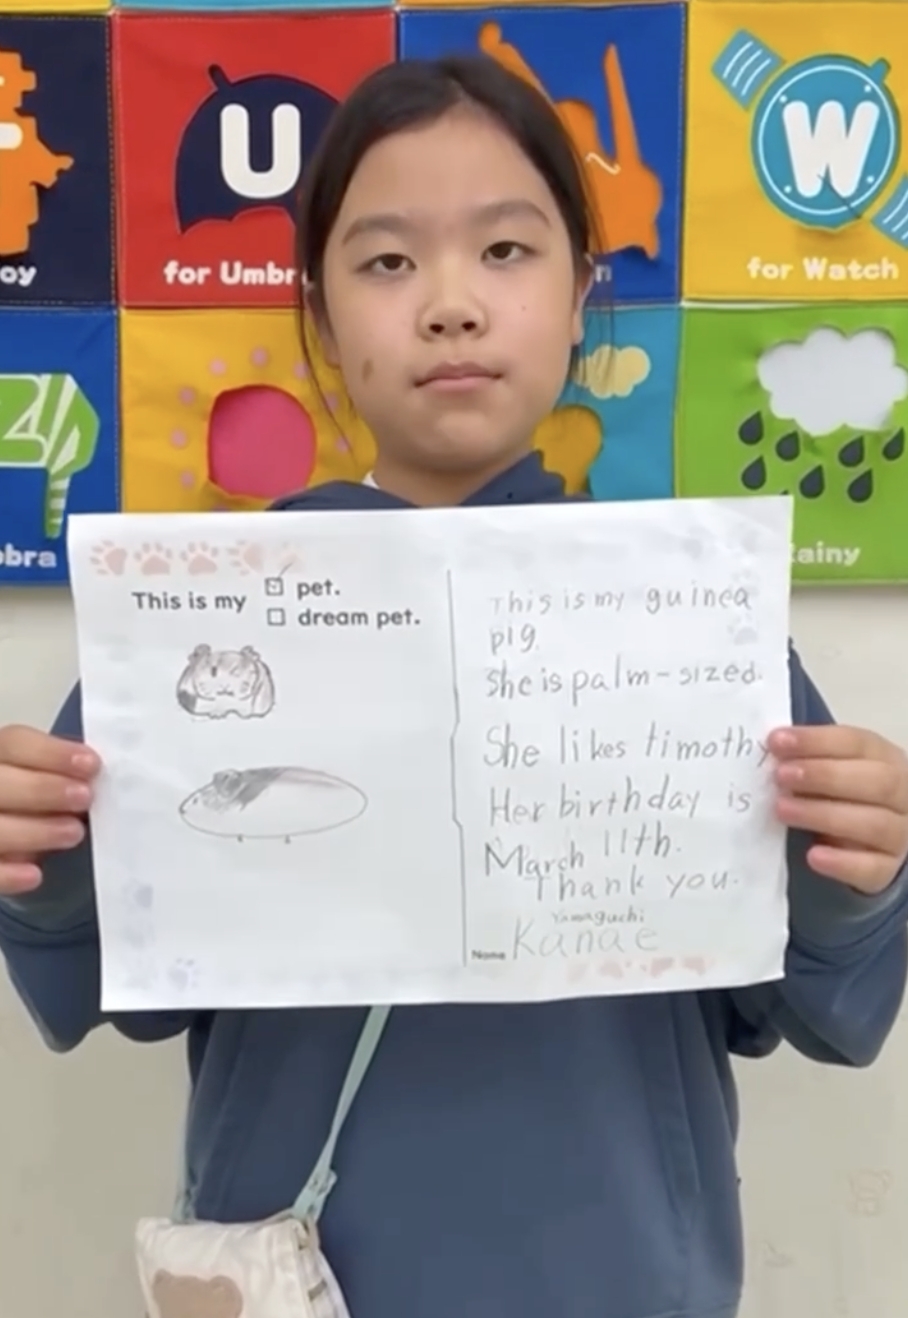 U
W
oy
for Umbr
n
for Watch
bra
Rainy
This is my
pet.
dream pet.
This is my guinea
pig.
She is palm-sized.
She likes timothy
Her birthday is
March 11th.
Thank you.
Yamaguchi
Name Kanae